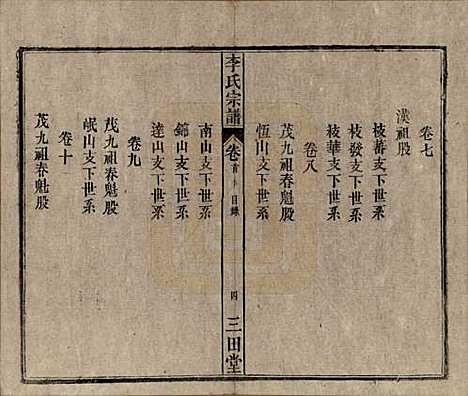 卷七
漢祖股
枝蕃支下世系
枝發支下世系
枝華支下世系
卷八
茂九祖春魁股
恆山支下世系
李氏宗譜
卷首
目錄
四
三田堂
南山支下世系
錦山支下世系
達山支下世系
卷九
茂九祖春魁股
岷山支下世系
卷十
茂九祖春魁股